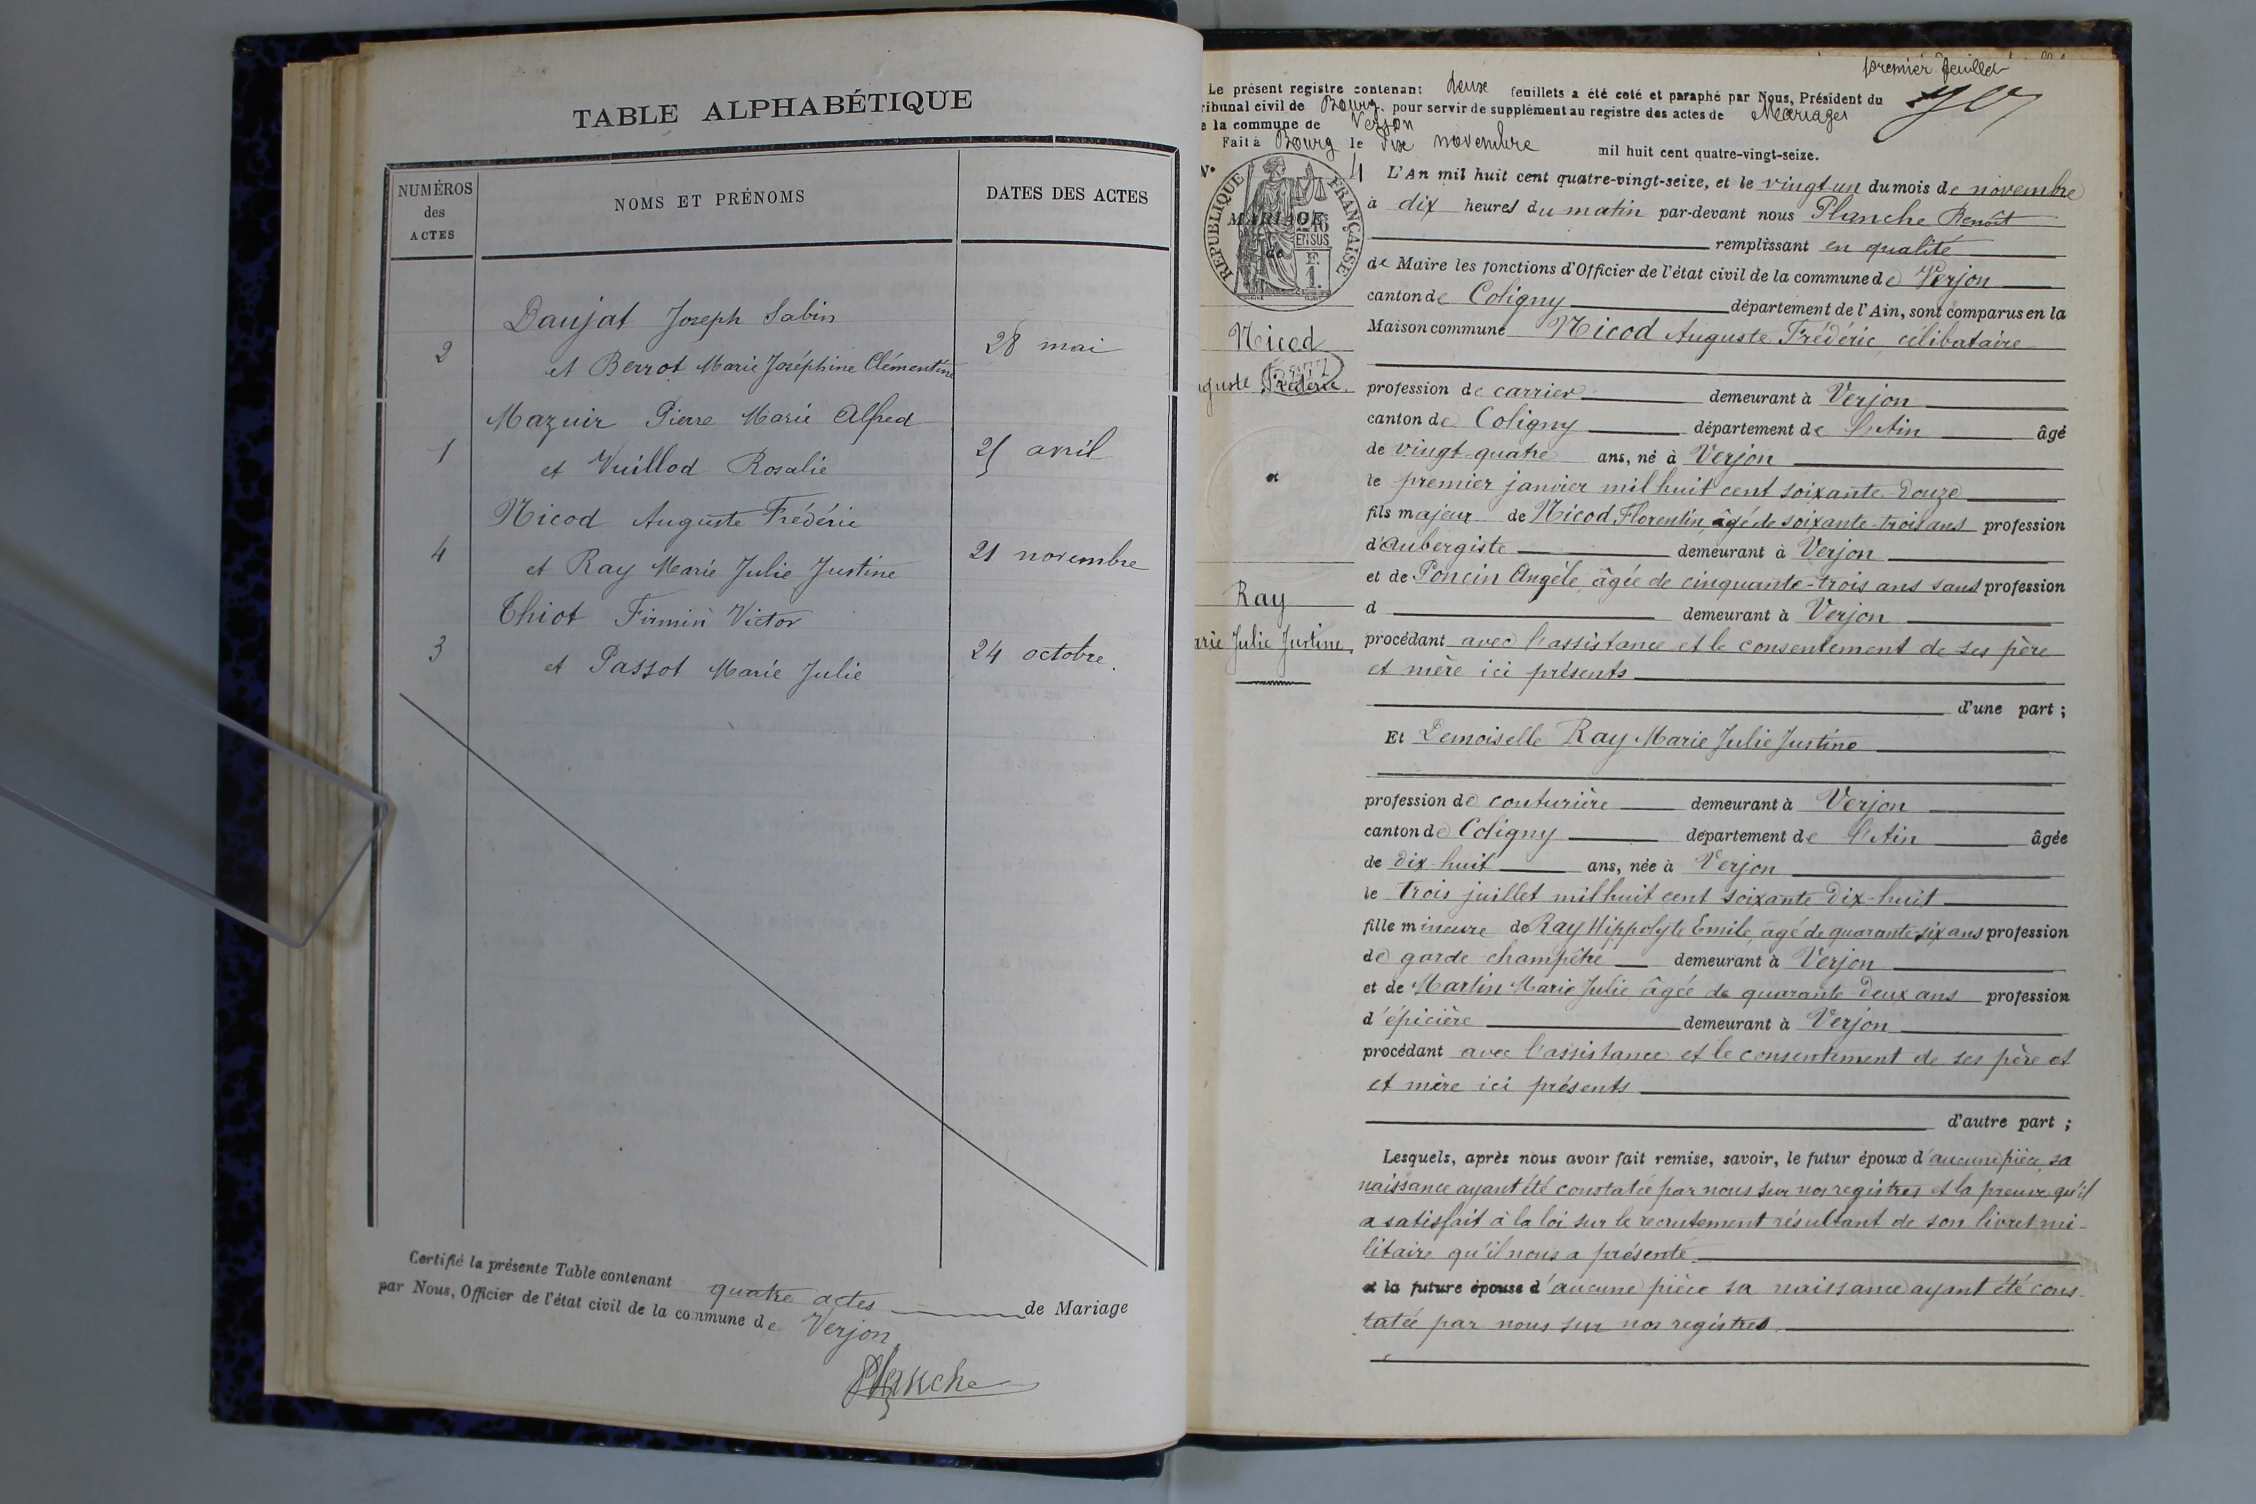 TABLE ALPHABÉTIQUE
NUMÉROS des ACTES
NOMS ET PRÉNOMS
DATES DES ACTES
Daujat Joseph Sabin
2 et Berrot Marie Joséphine Clémentine 28 mai
Mazuir Pierre Marie Alfred
1 et Vuillod Rosalie 21 avril
Nicod Auguste Frédéric
4 et Ray Marie Julie Justine 21 novembre
Thiot Firmin Victor
3 et Passot Marie Julie 24 octobre.
Certifié la présente Table contenant quatre actes de Mariage
par Nous, Officier de l'état civil de la commune de Verjon
Planche
premier feuillet
Le présent registre contenant deux feuillets a été coté et paraphé par Nous, Président du
ribunal civil de Bourg, pour servir de supplément au registre des actes de Mariages
e la commune de Verjon
Fait à Bourg le dix novembre mil huit cent quatre-vingt-seize.
RÉPUBLIQUE FRANÇAISE
MARIAGE
de
Nicod
guste Frédéric
et
Ray
arie Julie Justine.
4 L'An mil huit cent quatre-vingt-seize, et le vingt-un du mois de novembre
à dix heures du matin par-devant nous Planche Benoît
remplissant en qualité
de Maire les fonctions d'Officier de l'état civil de la commune de Verjon
canton de Coligny département de l'Ain, sont comparus en la
Maison commune Nicod Auguste Frédéric, célibataire
profession de carrier demeurant à Verjon
canton de Coligny département de l'Ain âgé
de vingt-quatre ans, né à Verjon
le premier janvier mil huit cent soixante-douze
fils majeur de Nicod Florentin, âgé de soixante-trois ans profession
d'aubergiste demeurant à Verjon
et de Poncin Angèle, âgée de cinquante-trois ans sans profession
d demeurant à Verjon
procédant avec l'assistance et le consentement de ses père
et mère ici présents
d'une part ;
Et Demoiselle Ray Marie Julie Justine
profession de couturière demeurant à Verjon
canton de Coligny département de l'Ain âgée
de dix-huit ans, née à Verjon
le trois juillet mil huit cent soixante dix-huit
fille mineure de Ray Hippolyte Emile, âgé de quarante-six ans profession
de garde-champêtre demeurant à Verjon
et de Martin Marie Julie âgée de quarante-deux ans profession
d'épicière demeurant à Verjon
procédant avec l'assistance et le consentement de ses père et
et mère ici présents
d'autre part ;
Lesquels, après nous avoir fait remise, savoir, le futur époux d'aucune pièce, sa
naissance ayant été constatée par nous sur nos registres et la preuve qu'il
a satisfait à la loi sur le recrutement résultant de son livret mi-
litaire qu'il nous a présenté.
et la future épouse d'aucune pièce sa naissance ayant été cons-
tatée par nous sur nos registres.